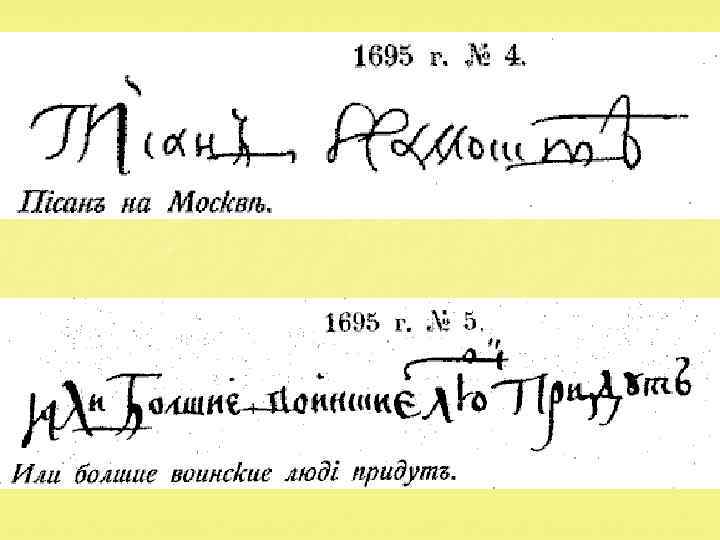 1695 г. № 4.
Пісанъ на Москвѣ
Пісанъ на Москвѣ.
1695 г. № 5.
или болшиє воинскиє лю ді придутъ
Или болшие воинские люді придутъ.